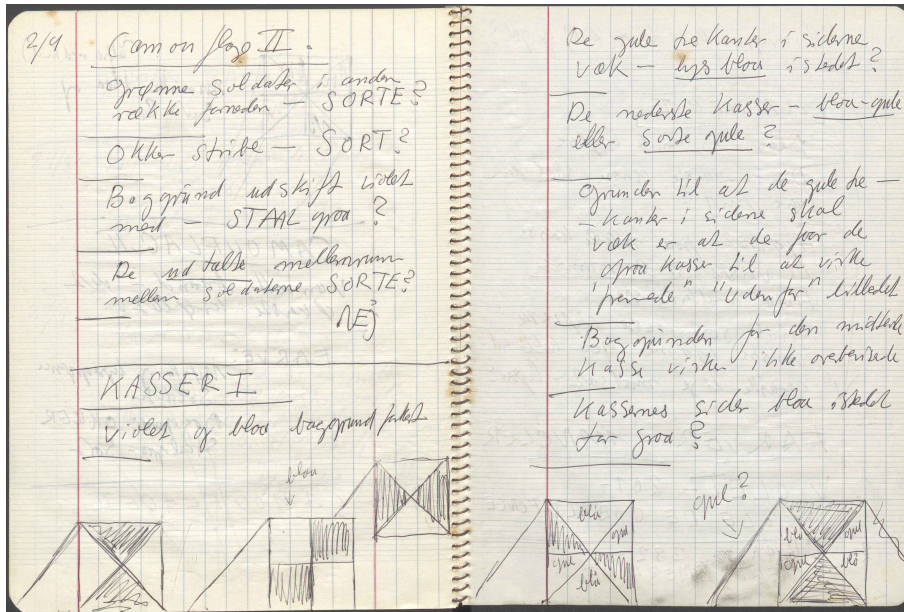 2/4
Camouflage II.
Grønne soldater i anden
række forneden — SORTE?
Okker stribe — SORT?
Baggrund udskift violet
med — STAAL graa ?
De udfaldte mellemrum
mellem soldaterne SORTE?
NEJ
KASSER I
violet og blaa baggrund
blaa
De gule trekanter i siderne
væk — lys blaa istedet?
De nederste Kasser — blaa-gule
eller sorte gule ?
Grunden til at de gule tre—
—kanter i siderne skal
væk er at de faar de
graa Kasser til at virke
"Udenfor" billedet
Baggrunden for den midterste
Kasse virker ikke
Kassernes sider blaa istedet
for graa ?
gul?
blå
gul
gul
blå
blå
gul
gul
blå